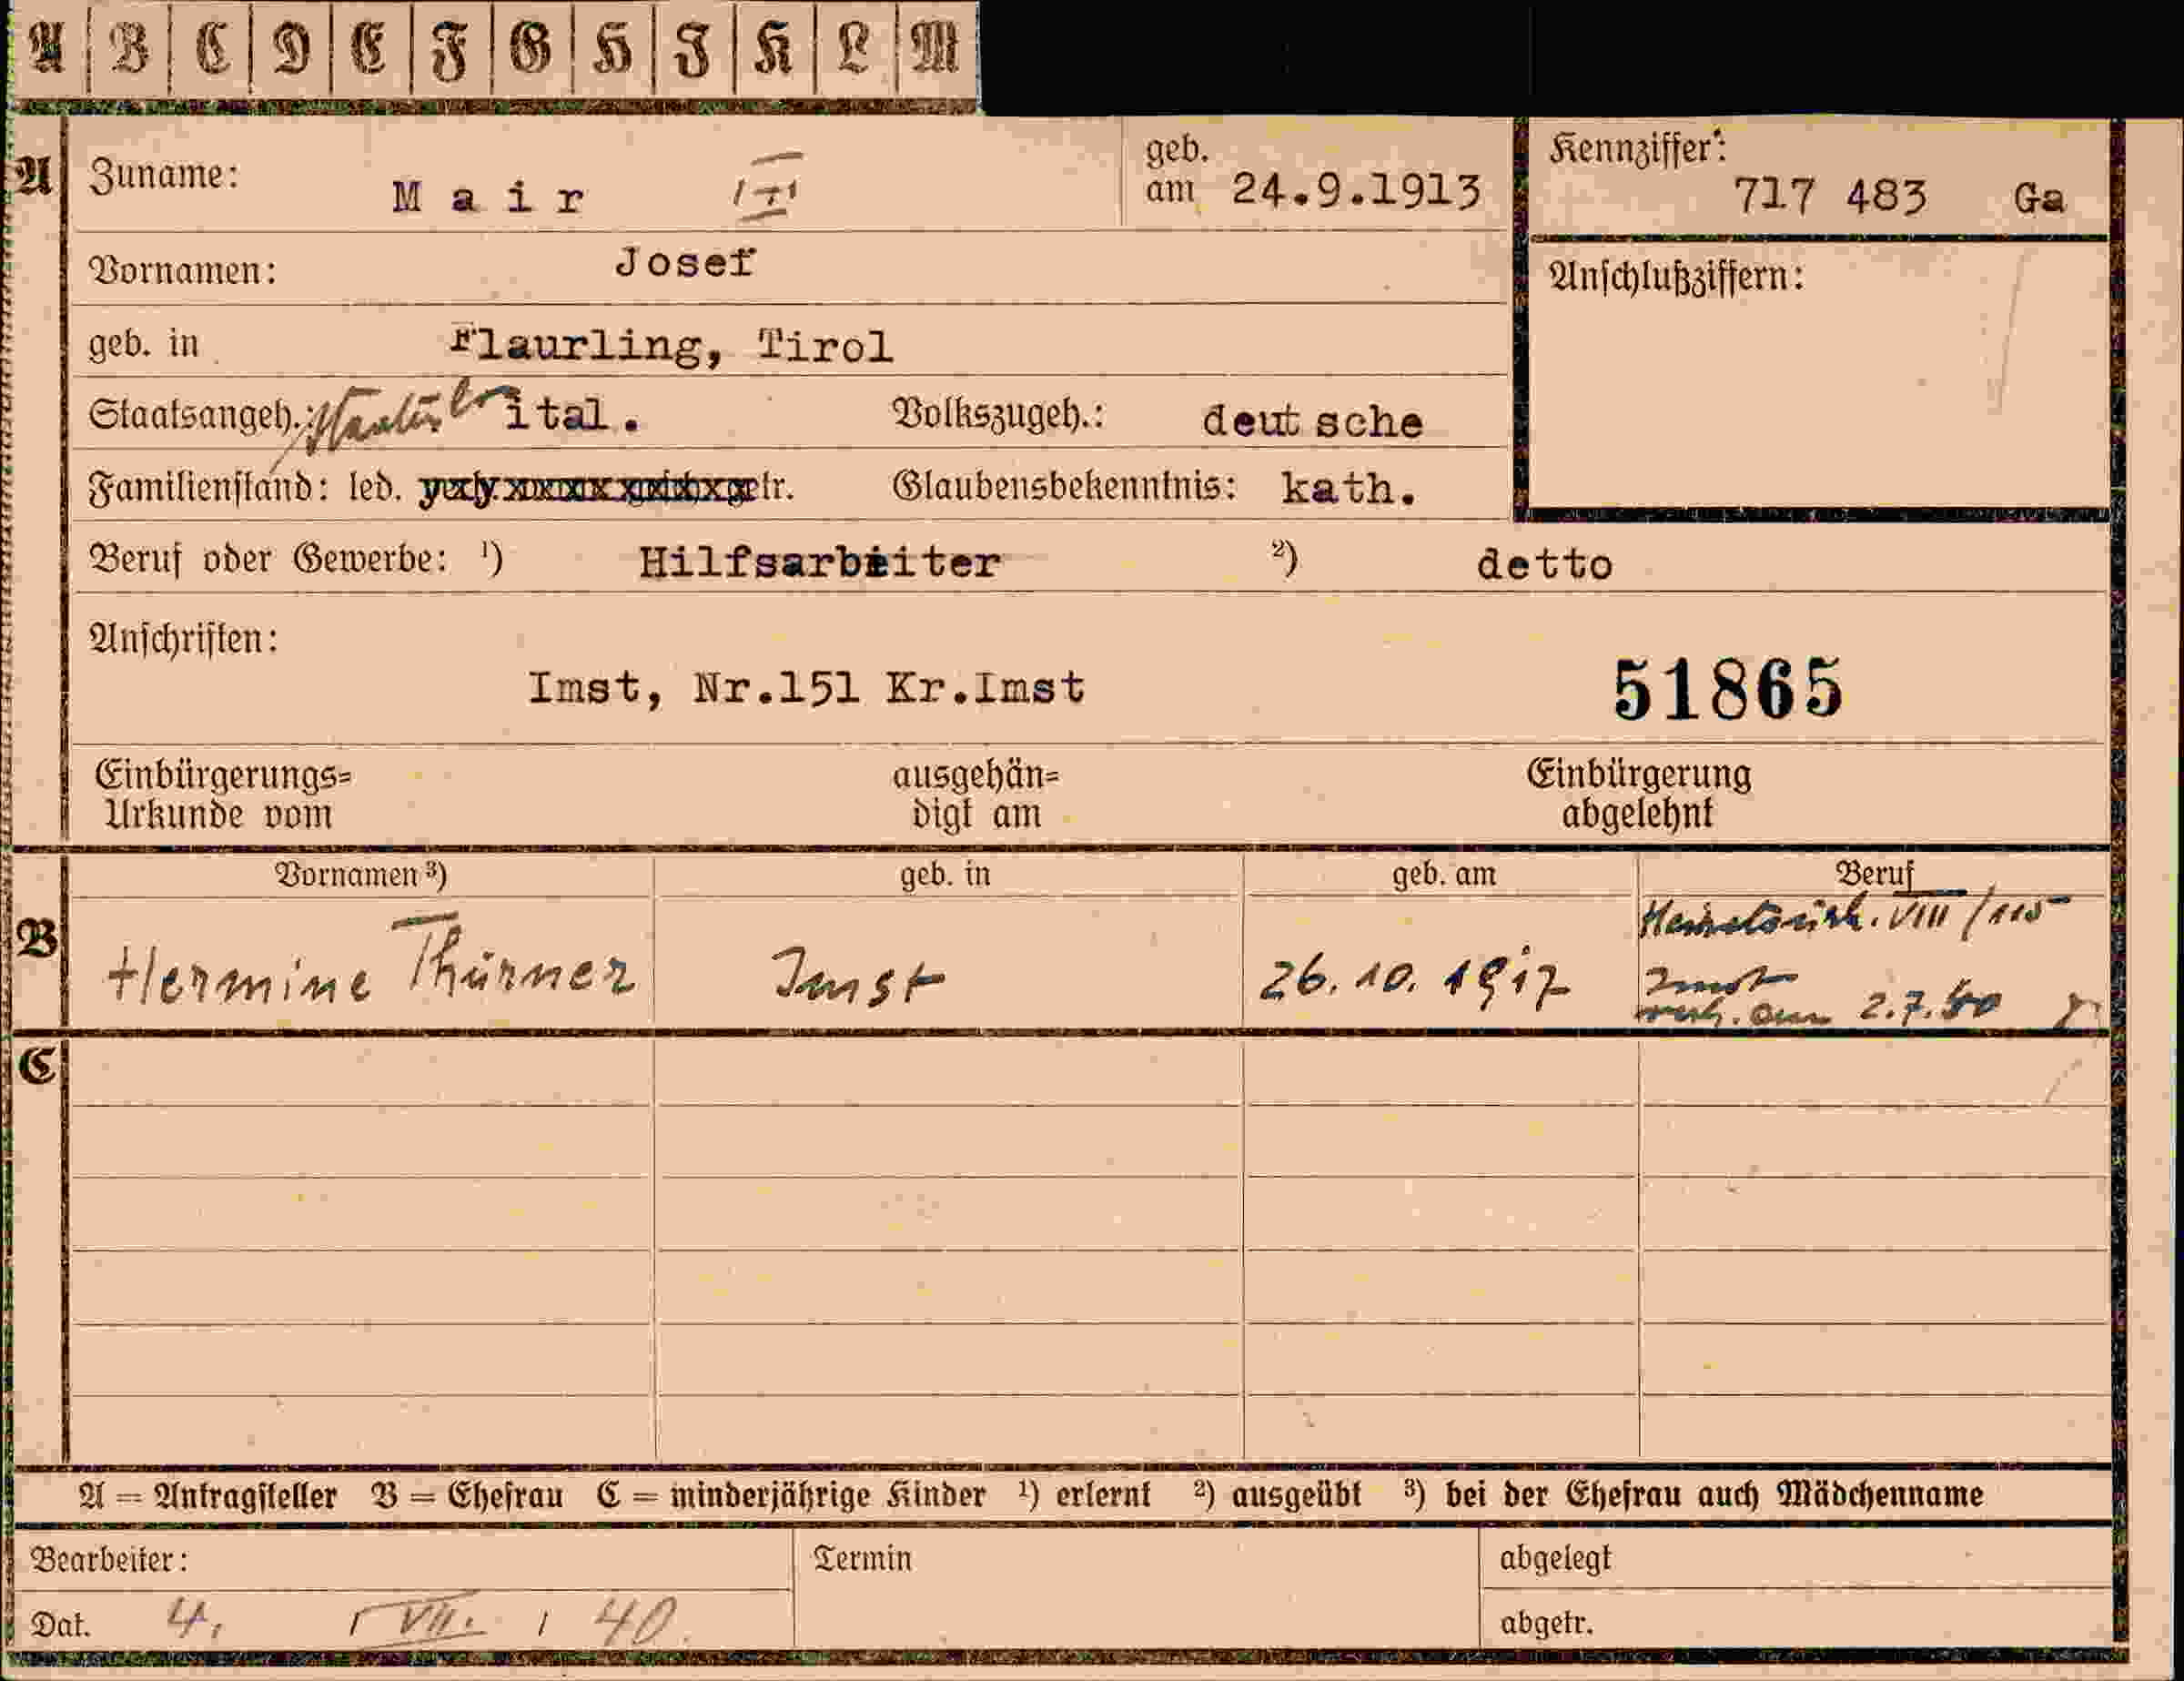 A B C D E F G H I K L M
A Zuname: Mair III geb. am 24.9.1913 Kennziffer: 717 483 Ga
Vornamen: Josef Anschlußziffern:
geb. in Flaurling, Tirol
Staatsangeh.: ital. Volkszugeh.: deutsche
Familienstand: led. getr. Glaubensbekenntnis: kath.
Beruf oder Gewerbe: ¹) Hilfsarbeiter ²) detto
Anschriften:
Imst, Nr.151 Kr.Imst 51865
Einbürgerungs= ausgehän= Einbürgerung
Urkunde vom digt am abgelehnt
Vornamen ³) geb. in geb. am Beruf
B Hermine Thurner Imst 26.10.1917 Heiratsurk. VIII/115
Imst
am 2.7.40
C
A = Antragsteller B = Ehefrau C = minderjährige Kinder ¹) erlernt ²) ausgeübt ³) bei der Ehefrau auch Mädchenname
Bearbeiter: Termin abgelegt
Dat. 4. / VII. / 40. abgetr.